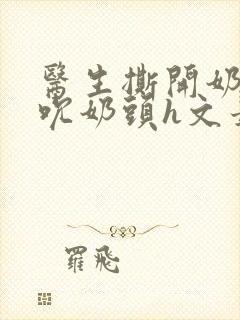 醫生撕開奶
吮奶頭h文
羅飛